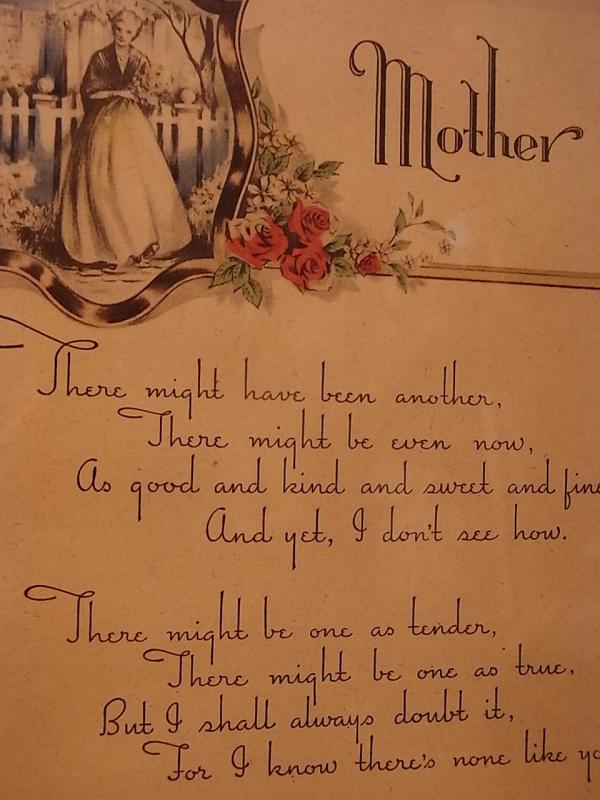 Mother
There might have been another,
There might be even now,
As good and kind and sweet and fine
And yet, I don't see how.
There might be one as tender,
There might be one as true,
But I shall always doubt it,
For I know there's none like